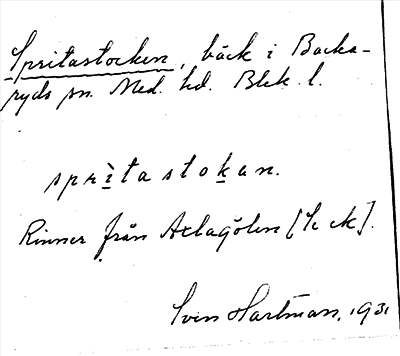 Spritastocken, bäck i Backa-
ryds sn. Med. hd. Blek. l.
sprìtastokan.
Rinner från Axlagölen [ ].
Sven Hartman, 1931